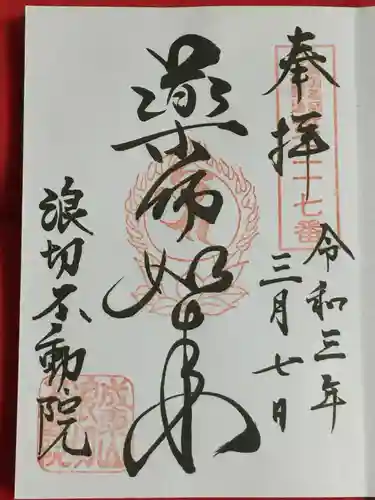 奉拝
令和三年
三月七日
薬師如来
浪切不動院